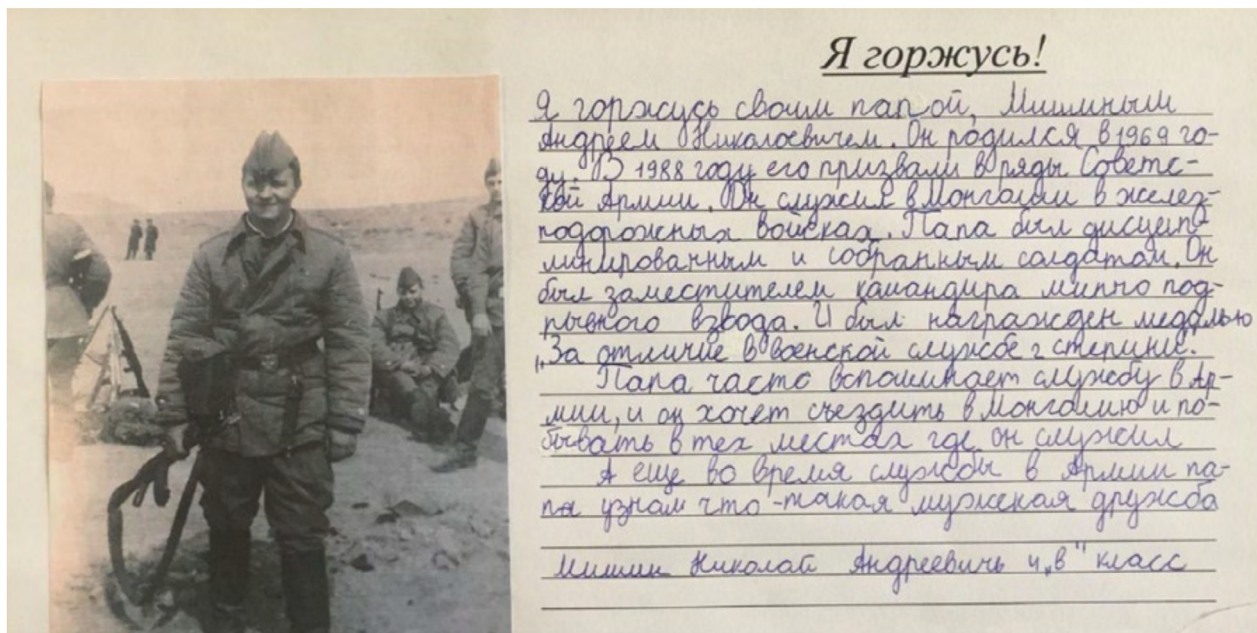 Я горжусь!
Я горжусь своим папой, Мишиным
Андреем Николоевичем. Он родился в 1969 го-
ду. В 1988 году его призвали в ряды Советс-
кой Армии. Он служил в Монголии в желез-
нодорожных войсках. Папа был дисцип-
линированным и собранным солдатом. Он
был заместителем командира минно под-
рывного взвода. И был награжден медалью
"За отличие в воинской службе 2 степини".
Папа часто вспоминает службу в Ар-
мии, и он хочет съездить в Монголию и по-
бывать в тех местах где он служил
А еще во время службы в Армии па-
па узнал что-такая мужская дружба
Мишин Николай Андреевичь 4 "в" класс